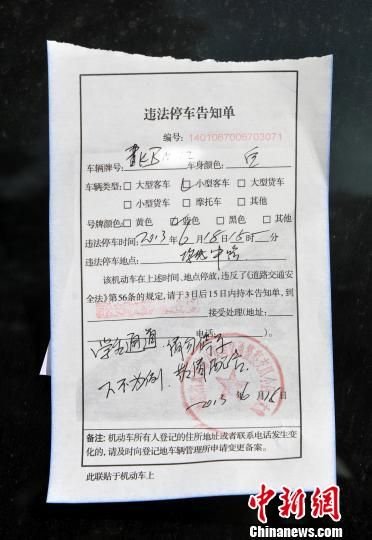 违法停车告知单
编号: 1401067006703071
车辆牌号: 车身颜色: 白
车辆类型: □ 大型客车 □ 小型客车 □ 大型货车
□ 小型货车 □ 摩托车 □ 其他
号牌颜色: □ 黄色 □ 蓝色 □ 黑色 □ 其他
违法停车时间: 2013 年 6 月 18 日 15 时 分
违法停车地点: 中
该机动车在上述时间、地点停放,违反了《道路交通安
全法》第56条的规定,请于3日后15日内持本告知单,到
接受处理(地址:
电话: )。
学生通道,请勿停车
下不为例,敬请配合.
2013 年 6 月 日
备注: 机动车所有人登记的住所地址或者联系电话发生变
化的,请及时向登记地车辆管理所申请变更备案。
此联贴于机动车上
中新网
Chinanews.com